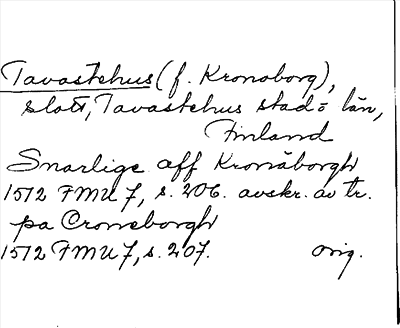 Tavastehus (f. Kronoborg),
slott, Tavastehus stad o län,
Finland
Snarlige aff Kronåborgh
1512 FMU 7, s. 206. avskr. av tr.
pa Croneborgh
1512 FMU 7, s. 207. orig.